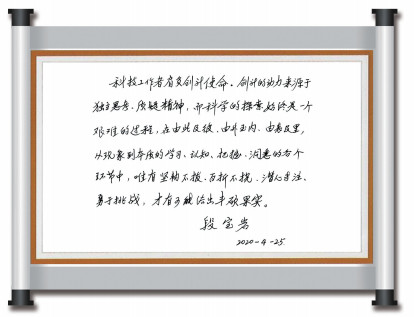 科技工作者肩负创新使命。创新的动力来源于
独立思考、质疑精神，而科学的探索始终是一个
艰难的过程，在由此及彼、由外至内、由表及里，
从现象到本质的学习、认知、把握、洞悉的各个
环节中，唯有坚韧不拔、百折不挠、潜心专注、
勇于挑战，才有可能结出丰硕果实。
段宝岩
2020-4-25